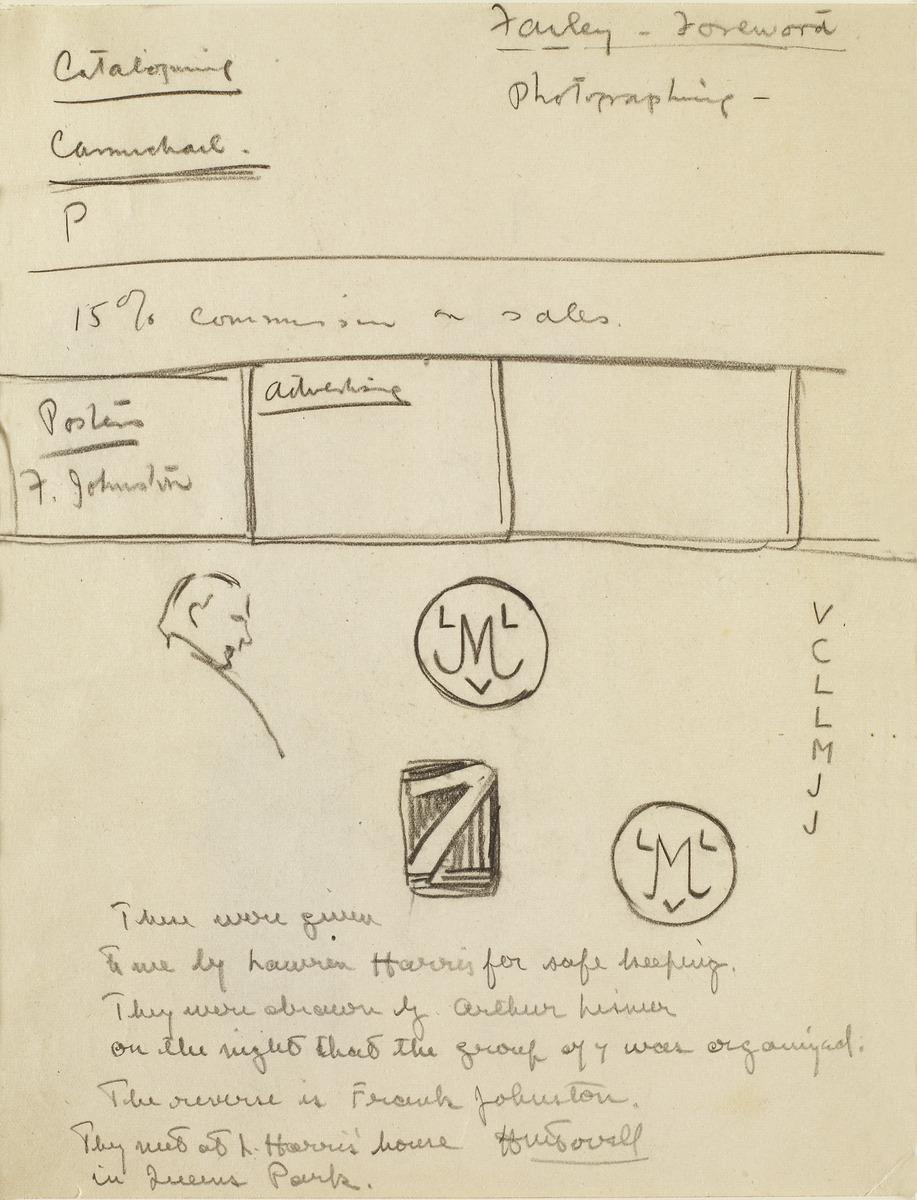 Farley - Foreword
Cataloguing
Photographing -
Carmichael.
P
15% commission on sales.
Posters
F. Johnston
Advertising
L M L
V
V
C
L
L
M
J
J
7
L M L
V
These were given
to me by Lawren Harris for safe keeping.
They were drawn by Arthur Lismer
on the night that the group of 7 was organized.
The reverse is Frank Johnston.
They met at L. Harris' house
in Queens Park.